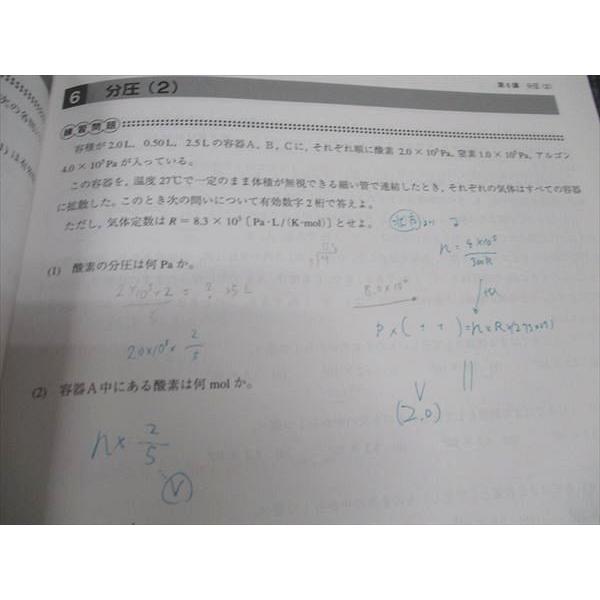 第6講 分圧(2)
6 分圧(2)
練習問題
容積が2.0L, 0.50L, 2.5Lの容器A, B, Cに, それぞれ順に酸素 2.0×10⁵Pa, 窒素1.0×10⁵Pa, アルゴン
4.0×10⁵Paが入っている。
この容器を, 温度27℃で一定のまま体積が無視できる細い管で連結したとき, それぞれの気体はすべての容器
に拡散した。このとき次の問いについて有効数字2桁で答えよ。
ただし, 気体定数はR=8.3×10³[Pa·L/(K·mol)]とせよ。
n = 4×10⁵/300R
(1) 酸素の分圧は何Paか。
2×10⁵×2 =
5
2.0×10⁵×2/5
(2) 容器A中にある酸素は何molか。
V
(2.0)
n×2/5
V